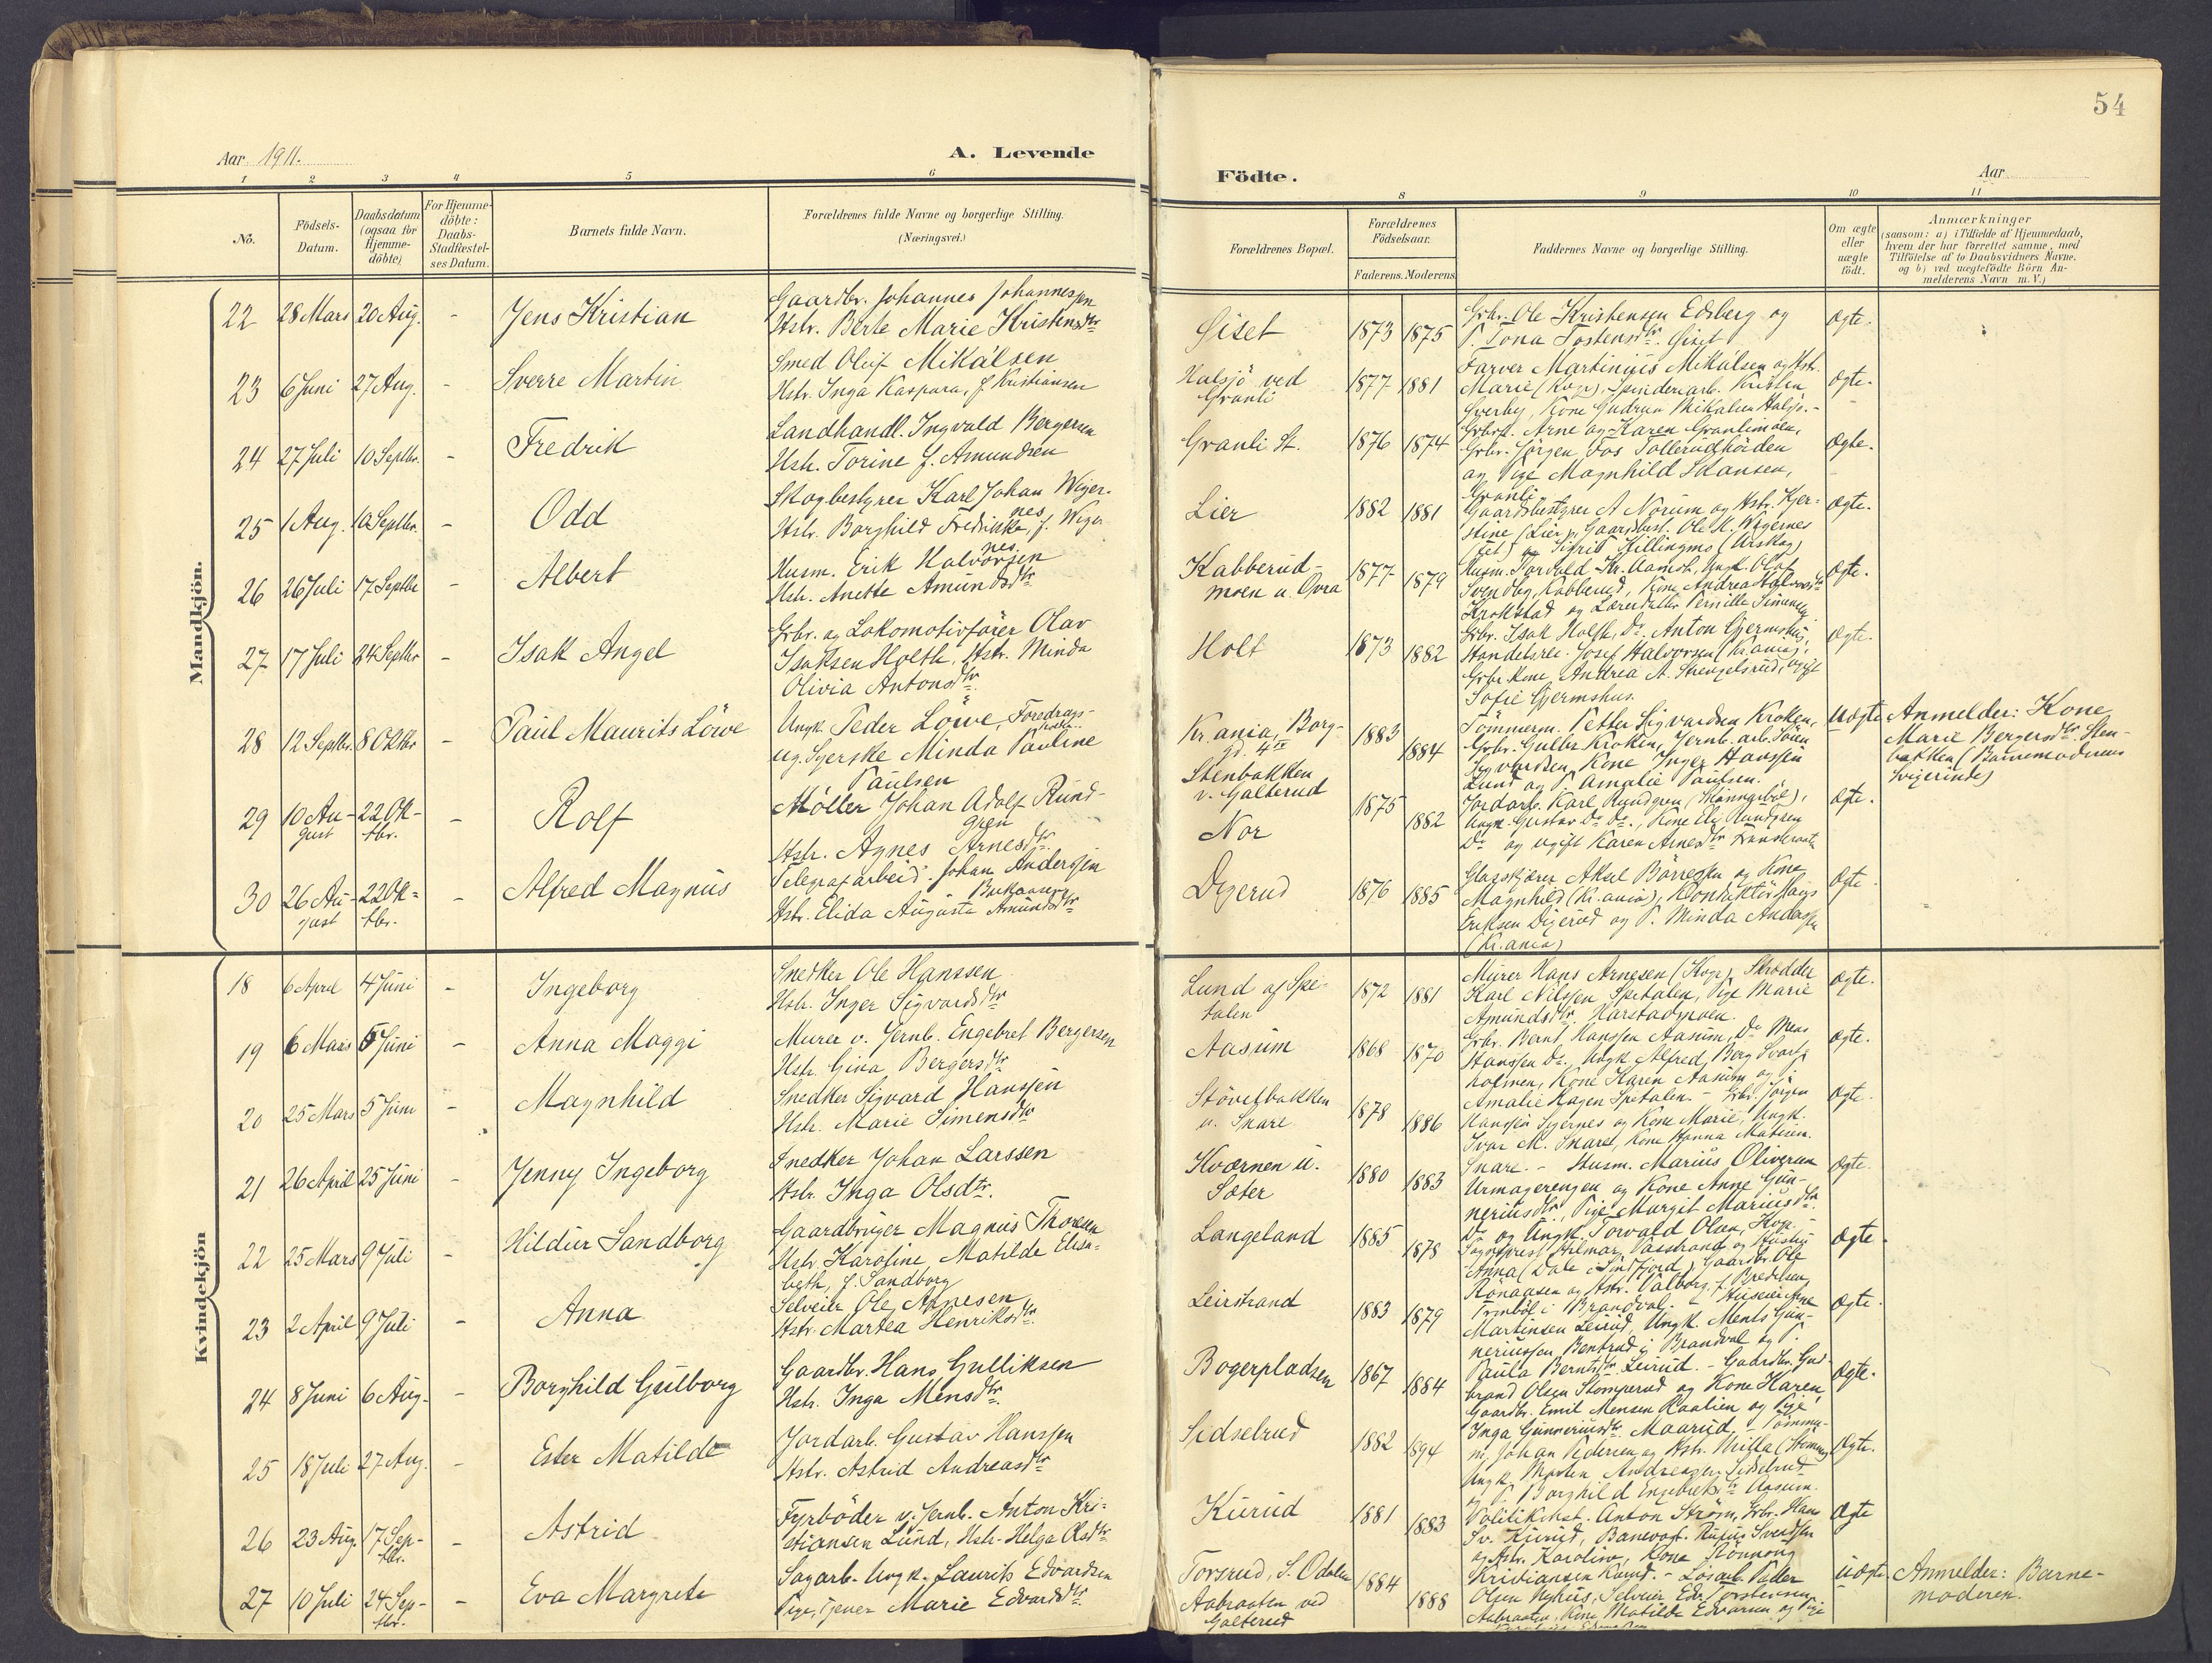 54
Aar 1911.
A. Levende
Födte.
Aar
1 2 3 4 5 6
8 9 10 11
No.
Födsels-
Datum.
Daabsdatum
(ogsaa for
Hjemme-
döbte)
For Hjemme-
döbte:
Daabs-
Stadfæstel-
ses Datum.
Barnets fulde Navn.
Forældrenes fulde Navne og borgerlige Stilling.
(Næringsvei.)
Forældrenes Bopæl.
Forældrenes
Födselsaar.
Faderens. Moderens
Faddernes Navne og borgerlige Stilling.
Om ægte
eller
uægte
födt.
Anmærkninger
(saasom: a) i Tilfælde af Hjemmedaab,
hvem der har forrettet samme, med
Tilföielse af to Daabsvidners Navne.
og b) ved uægtefödte Börn An-
melderens Navn m.V.)
Mandkjön.
22 28 Mars 20 Aug. - Jens Kristian
Gaardbr. Johannes Johannessen
Hstr. Berte Marie Kristensdtr
Giset 1873 1875
Grbr. Ole Kristensen Edsberg og
P. Tona Tostensdtr. Giset
Ægte.
23 6 Juni 27 Aug. - Sverre Martin
Smed Oluf Mikalsen
Hstr. Inga Kaspara, f. Kristiansen
Halsjö ved
Granli
1877 1881
Farver Martinius Mikalsen og Hstr.
Marie (Kvgr), Kristen
Sverby, Kone Gudrun Mikalsen Halsjö. -
Ægte.
24 27 Juli 10 Septbr. - Fredrik
Landhandl. Ingvald Bergersen
Hstr. Torine f. Amundsen
Granli St. 1876 1874
Arne og Karen Granlimoen,
Grbr. Jörgen Fos
og Pige Magnhild Hansen,
Granli
Ægte.
25 1 Aug. 10 Septbr. - Odd
Skogbestyrer Karl Johan Wiger-
nes
Hstr. Borghild Fredrikke, f. Wiger-
nes
Lier 1882 1881
Gaardsbestyrer A Norum og Hstr. Kjer-
stine (Lier), Gaardsbest. Ole K. Wigernes
Sigrid Killingmo
Ægte.
26 26 Juli 17 Septbr - Albert
Husm. Erik Halvorsen
Hstr. Anette Amundsdtr
Kabberud-
moen u. Opsa
1877 1879
Husm. Torvald Kr. Aamot, Ungk. Olaf
Kabberud, Kone Andrea Halvorsdtr
og Pernille Simensen
Ægte.
27 17 Juli 24 Septbr - Isak Angel
Grbr. og Lokomotivförer Olav
Isaksen Holth, Hstr. Minda
Olivia Antonsdtr.
Holt 1873 1882
Grbr. Isak Holth, Do. Anton Gjermshus,
Josef Halvorsen (Kr.ania),
Grbr. Kone Andrea A. ugift
Sofie Gjermshus.
Ægte.
28 12 Septbr. 8 Oktbr - Paul Maurits Löwe
Ungk. Peder Löwe, Foredrags-
holder
ug. Syerske Minda Pauline
Paulsen
Kr.ania, Borg-
gd. 4
Stenbakken
v. Galterud
1883 1884
Tömmerm. Petter Sigvardsen Kroken,
Grbr. Gulbr. Kroken, Jernb. arb. Sören
Sigvardsen, Kone Inger Hanssen
Lund og P. Amalie Paulsen.
Uægte
Anmelder: Kone
Marie Bergersdtr. Sten-
bakken (Barnemoderens
Svigerinde)
29 10 Au-
gust
22 Ok-
tbr.
- Rolf
Møller Johan Adolf Rund-
gren
Hstr. Agnes Arnesdtr.
Nor 1875 1882
Jordarb. Karl Rundgren
Ungk. Gustav Do Do., Kone Rundgren
Do og ugift Karen Arnesdtr
Ægte.
30 26 Au-
gust
22 Ok-
tbr.
- Alfred Magnus
Telegrafarbeid. Johan Anderssen
Hstr. Elida Augusta Amundsdtr
Digerud 1876 1885
Aksel Börresen og Kone
Magnhild (Kr.ania), Konduktör Hans
Eriksen Digerud og P. Minda Anderssen
(Kr.ania)
Ægte.
Kvindekjön
18 6 April 4 Juni - Ingeborg
Snedker Ole Hanssen
Hstr. Inger Sigvardsdtr
Lund af Spe-
talen
1872 1881
Murer Hans Arnesen (Kvgr), Skrædder
Karl Nilssen Spetalen, Pige Marie
Amundsdtr. Harstadmoen
Ægte.
19 6 Mars 5 Juni - Anna Maggi
Murer v. Jernb. Engebret Bergersen
Hstr. Gina Bergersdtr
Aasum 1868 1870
Grbr. Bernt Hanssen Aasum, Do Mens
Hanssen Do., Ungk. Alfred Berg Svart-
holmen, Kone Karen Aasum og
Amalie Hagen Spetalen. -
Ægte.
20 25 Mars 5 Juni - Magnhild
Snedker Sigvard Hanssen
Hstr. Marie Simensdtr
Stövelbakken
u. Snare
1878 1886
Grbr. Jörgen
Hanssen og Kone Marie, Ungk.
Ivar M. Snare, Kone Hanna
Snare. -
Ægte.
21 26 April 25 Juni - Jenny Ingeborg
Snedker Johan Larssen
Hstr. Inga Olsdtr.
Kværnen u.
Sæter
1880 1883
Husm. Marius Oliversen
Urmagerengen og Kone Anne Gun-
neriusdtr., Pige Margit Mariusdtr.
Do og Ungk. Torvald Olsen, Kvgr. -
Ægte.
22 25 Mars 9 Juli - Hildur Sandborg
Gaardbruger Magnus Thoresen
Hstr. Karoline Matilde Elisa-
beth, f. Sandborg
Langeland 1885 1878
Sogneprest Hilmar Vasstrand og Hustru
Anna (Dale i Söndfjord), Gaardbr. Ole
Rönaasen og Hstr. Valborg, f. Bredesen,
i Brandval. -
Ægte.
23 2 April 9 Juli - Anna
Selveier Ole Arnesen
Hstr. Martea Henriksdtr.
Leirstrand 1883 1879
Huseier Arne
Martinsen Leirud, Ungk. Ments Gun-
neriussen i Brandval og P.
Paula Berntsdtr. Leirud. -
Ægte.
24 8 Juni 6 Aug. - Borghild Gulborg
Gaardbr. Hans Gulliksen
Hstr. Inga Mensdtr.
Bogerpladsen 1867 1884
Gaardbr. Gud-
brand Olsen Stomperud og Kone Karen,
Gaardbr. Emil Mensen Raalien og Pige
Inga Gunneriusdtr. Maarud. -
Ægte.
25 18 Juli 27 Aug. - Ester Matilde
Jordarb. Gustav Hanssen
Hstr. Astrid Andreasdtr
Sidselrud 1882 1894
Tömmer-
m. Johan Pedersen og Hstr. Milla
Ungk. Morten Andreassen Sidselrud
og P. Borghild Engebretsdtr Aasum.
Ægte.
26 23 Aug. 17 Sep-
tbr.
- Astrid
Fyrböder v. Jernb. Anton Kri-
stiansen Lund, Hstr. Helga Olsdtr
Kurud 1881 1883
Anton Ström, Grbr. Hans
Sv. Kurud, Banevogt. Rufus Svendsen
og Hstr. Karoline, Kone Rönnoug
Kristiansen Kurud. -
Ægte
27 10 Juli 24 Sep-
tbr.
- Eva Margrete
Sagarb. Ungk. Laurits Edvardsen
Pige, tjener Marie Edvardsdtr
Torsrud, S. Odalen
Aabraaten ved
Galterud
1884 1888
Lösarb. Peder
Olsen Nyhus, Selveier Edv. Torstensen
Aabraaten, Kone Matilde Edvarsen og Pige
Uægte.
Anmelder: Barne-
moderen.